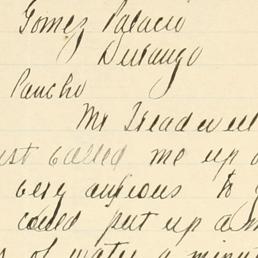 Gomez Palacio
Durango
Pancho
Mr Treadwell
called me up
very anxious to
could put up a
of water a minut